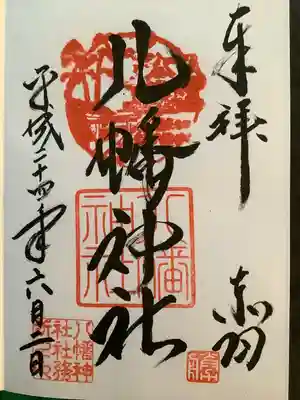 奉拝
赤羽
八幡神社
平成二十四年六月二日
八幡神
社社務
所之印